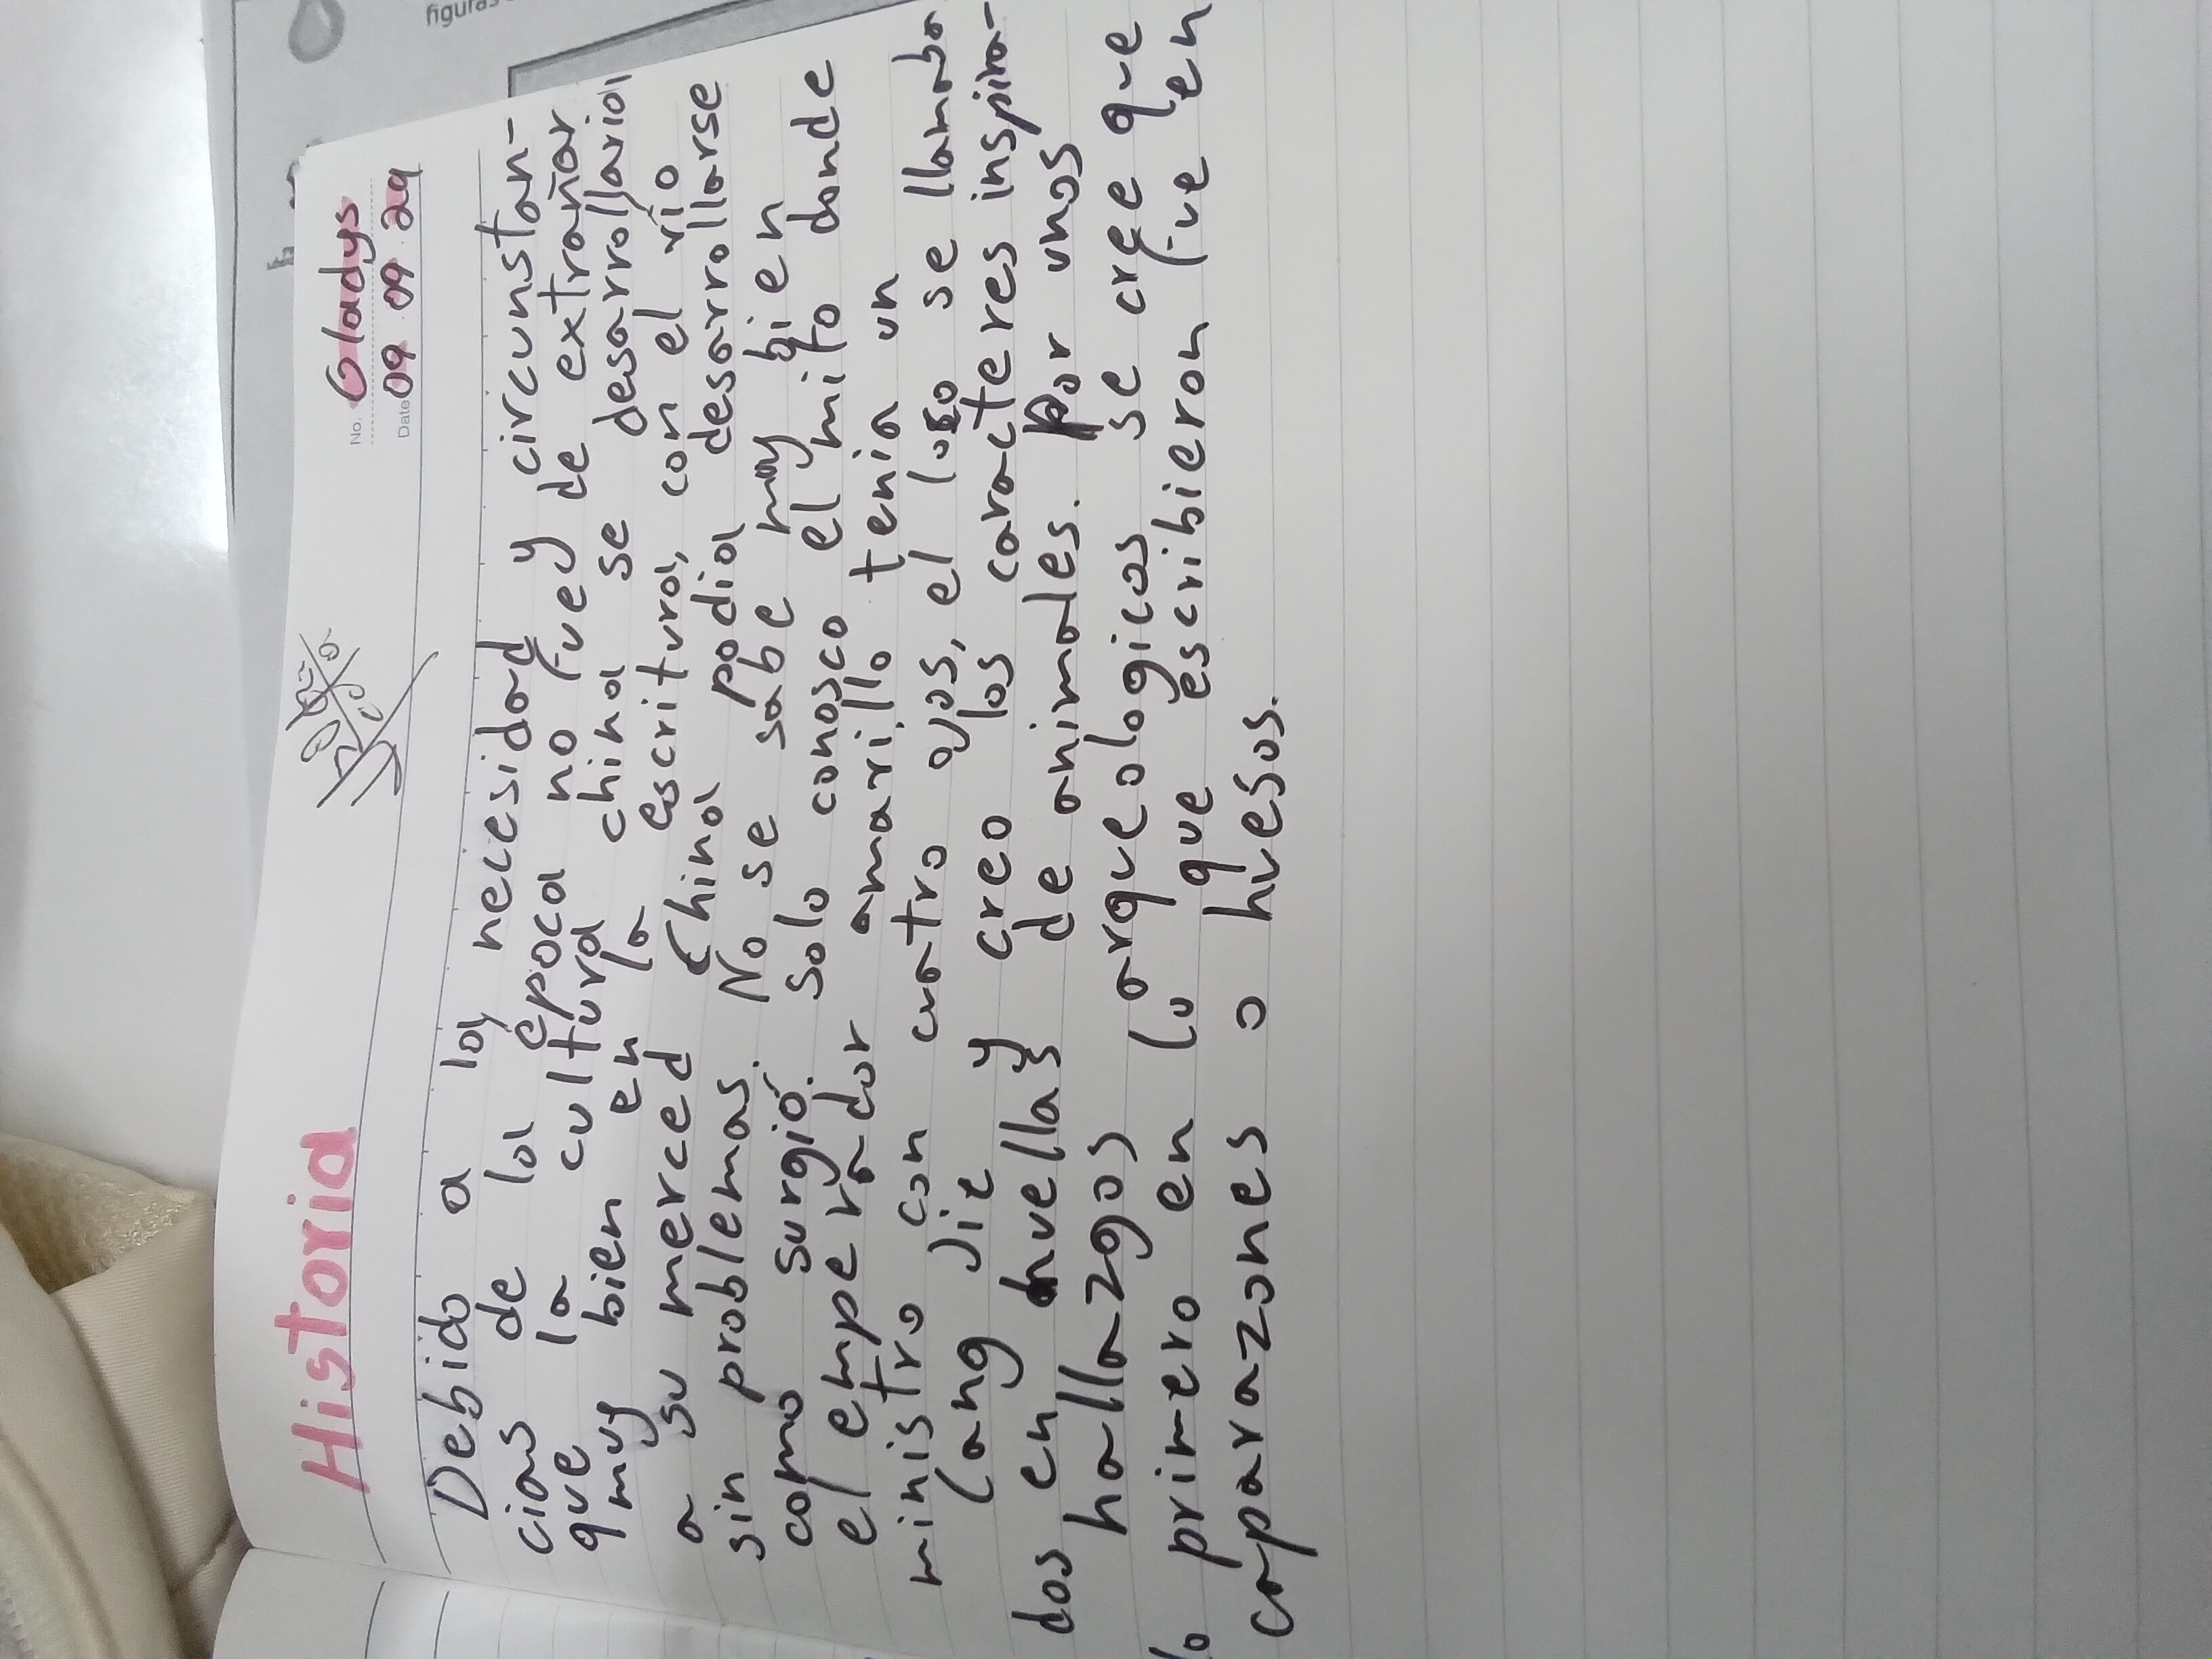 figuras
No. Gladys
Date 09 09 29
Historia
Debido a la necesidad y circunstan-
cias de la epoca no fue de extrañar
que la cultura china se desarrollaria
muy bien en la escritura, con el rio
a su merced China podia desarrollarse
sin problemas. No se sabe muy bien
como surgió. Solo conosco el mito donde
el emperador amarillo tenia un
ministro con cuatro ojos, el loso se llamaba
Cang Jie y creo los caracteres inspira-
dos en huellas de animales. Por unos
hallazgos arqueologicos se cree que
lo primero en lo que escribieron fue en
caparazones o huesos.